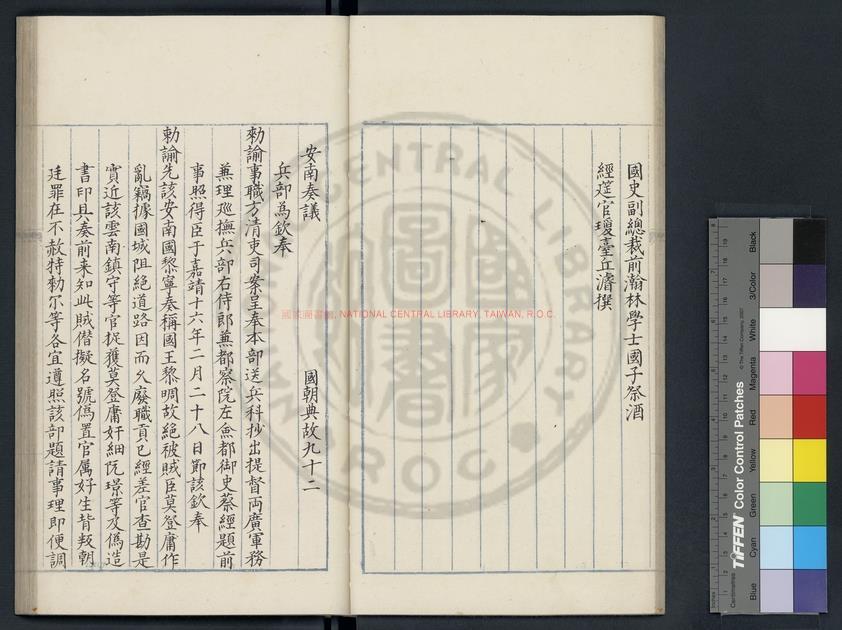 國史副總裁前瀚林學士國子祭酒
經筵官瓊臺丘濬撰
安南奏議 國朝典故九十二
兵部為欽奉
勑諭事職方清吏司案呈奉本部送兵科抄出提督両廣軍務
蕪理廵撫兵部右侍郎蕪都察院左僉都御史蔡經題前
事照得臣于嘉靖十六年二月二十八日節該欽奉
勑諭先該安南國黎寧奏稱國王黎晭故絶被賊臣莫登庸作
亂竊據國城阻絶道路因而乆廢職貢已經差官查勘是
實近該雲南鎮守等官捉獲莫登庸奸細阮璟等及偽造
書印具奏前来知此賊僣擬名號偽置官屬好生背叛朝
廷罪在不赦特勑尔等各宜遵照該部題請事理即便調
國家圖書館, NATIONAL CENTRAL LIBRARY, TAIWAN, R.O.C.
NATIONAL CENTRAL LIBRARY
R.O.C.
TIFFEN Color Control Patches
© The Tiffen Company, 2007
Blue Cyan Green Yellow Red Magenta White 3/Color Black
Centimetres
Inches